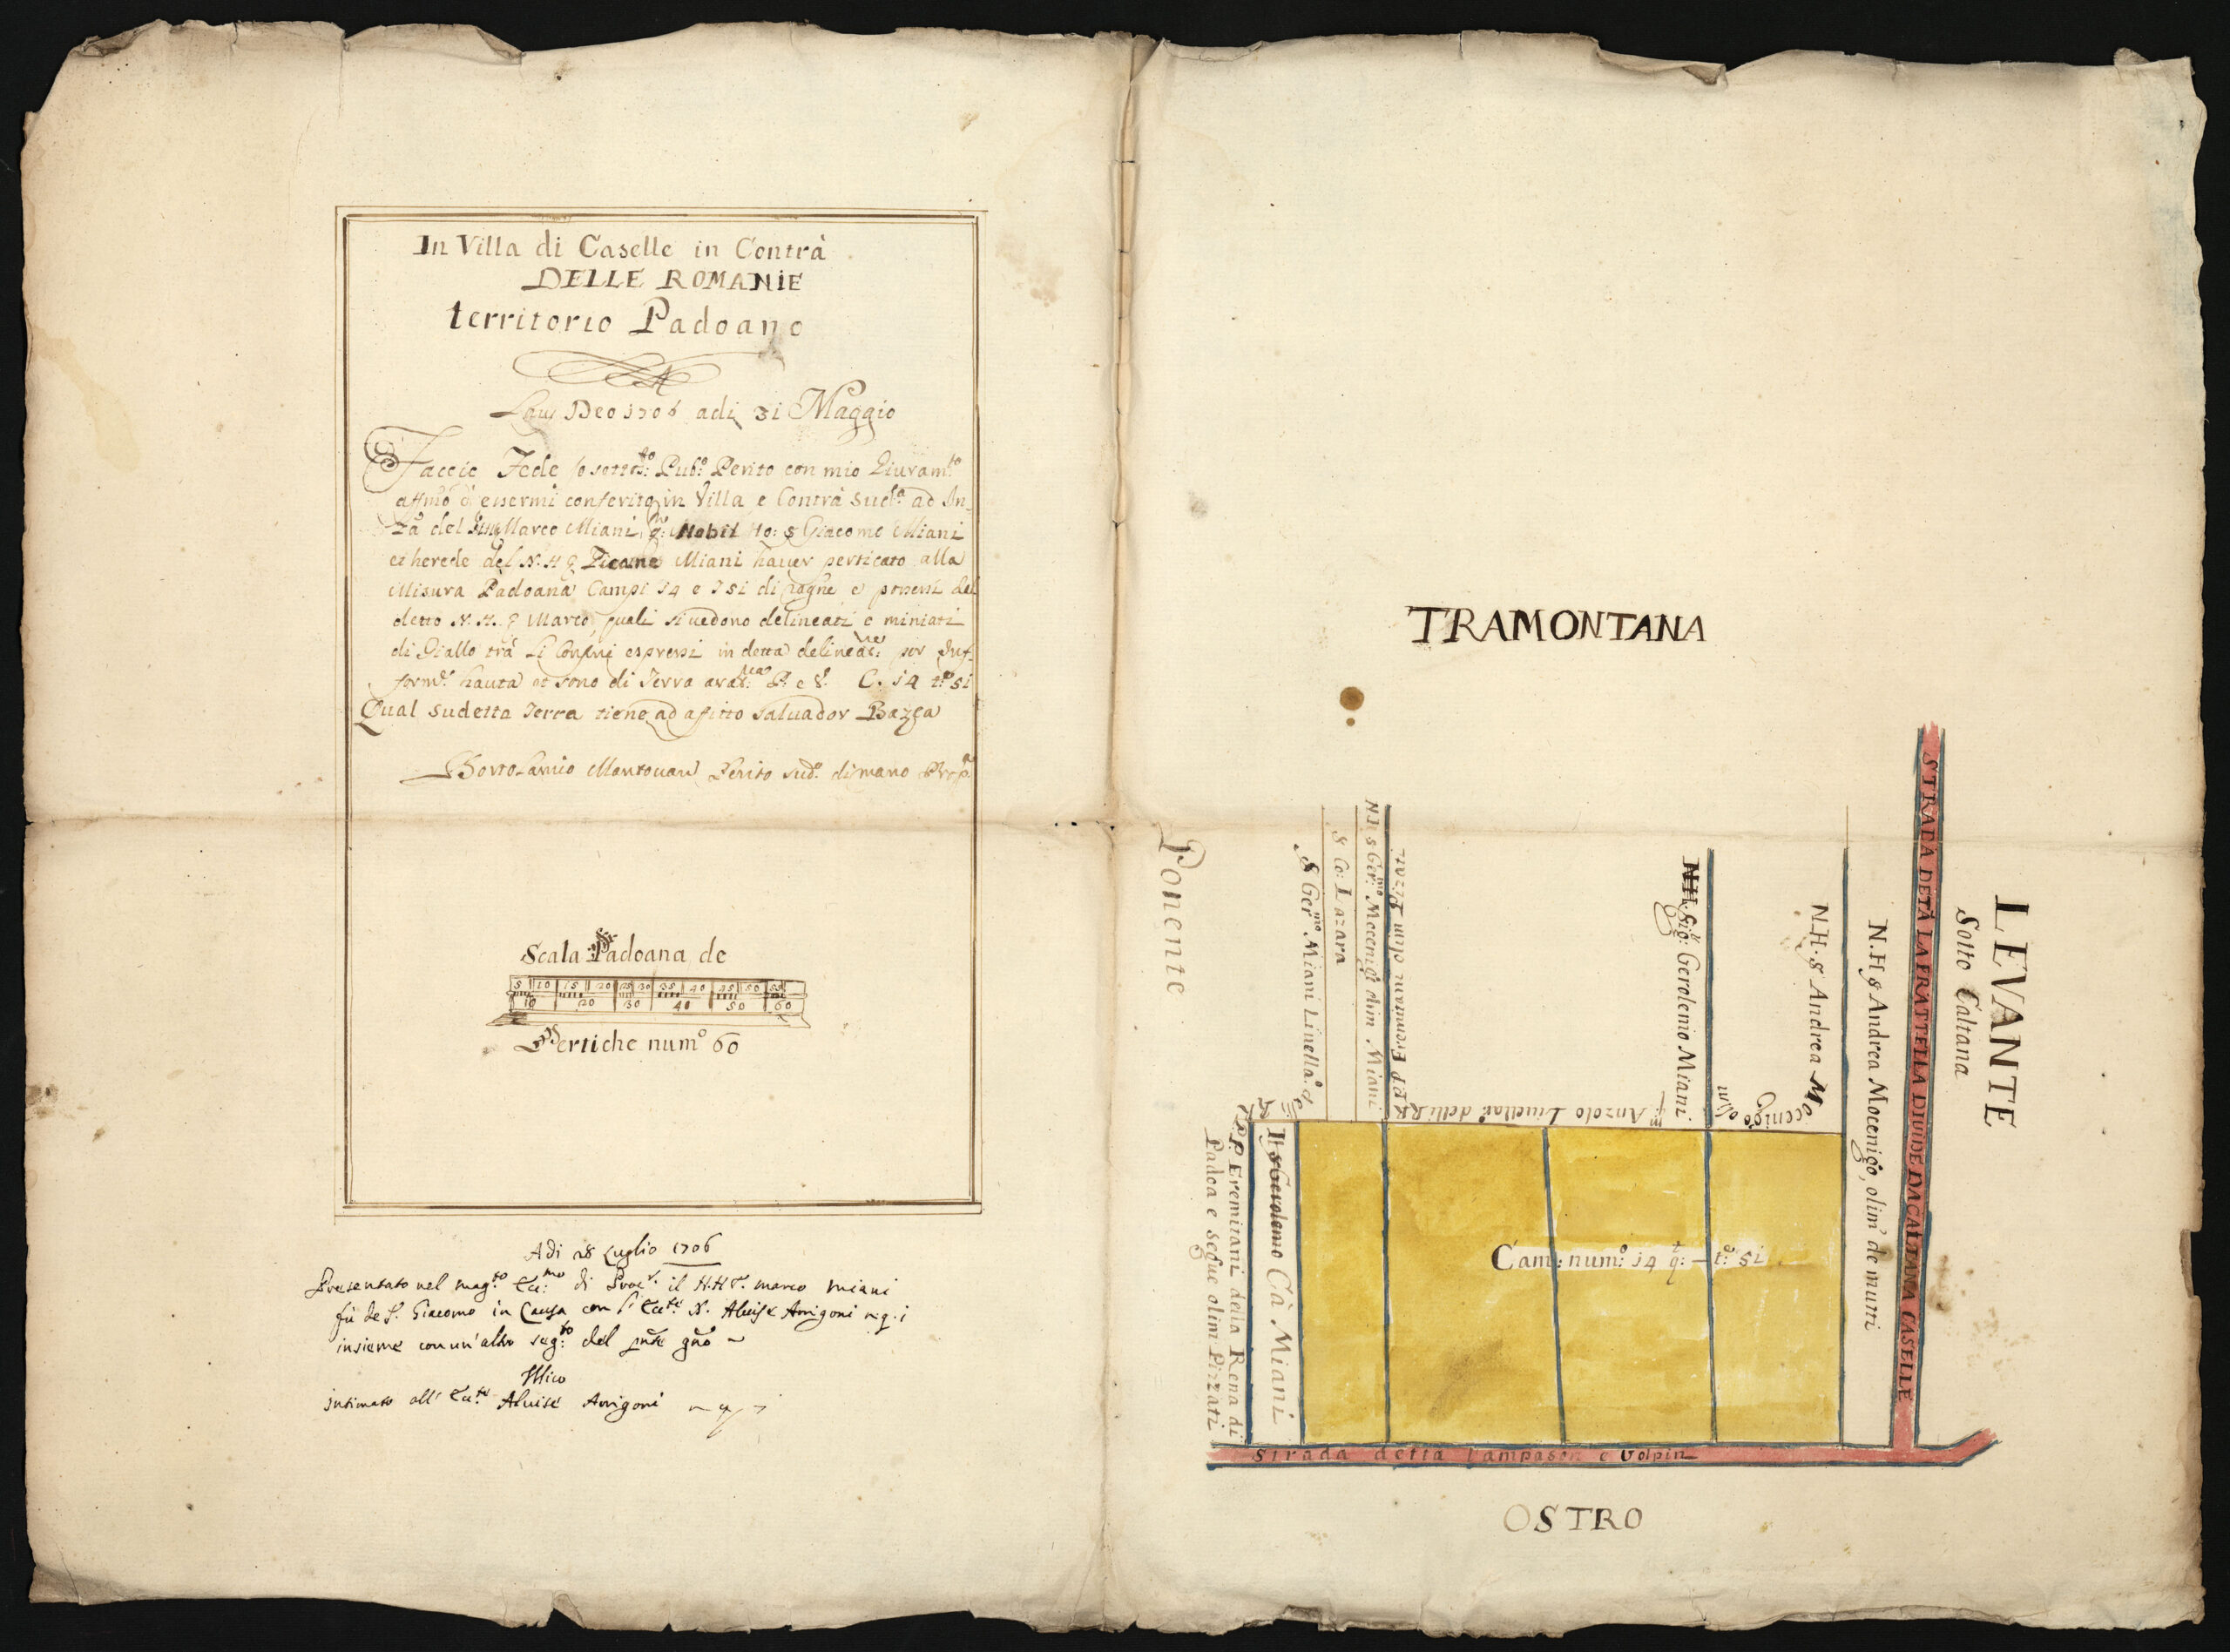 In Villa di Caselle in Contrà
DELLE ROMANIE
territorio Padoano
Laus Deo 1706 adi 31 Maggio
Faccio Fede Io sottos:to Pub:o Perito con mio Giuram:to
essermi conferito in Villa e Contrà Sud:a ad In-
za del Marco Miani q: Nobil Ho: s Giacomo Miani
et herede del N. H. Miani hauer perticato alla
Misura Padoana Campi 14 e 51 di e possessi del
detto N. H. Marco, quali si uedono delineati e miniati
di Giallo trà Li Confini espressi in detta deline per Inf-
form:e hauta et sono di Terra P. e V. C. 14 t:e 51
Qual sudetta Terra tiene ad afitto Saluador Bazea
Bortolamio Mantouan Perito sud:o di mano Prop:a
Scala Padoana de
5 10 15 20 25 30 35 40 45 50 55
10 20 30 40 50 60
Pertiche num:o 60
Adi 28 Luglio 1706
Presentato nel mag:to di il N.H. marco miani
fù de S. Giacomo in Causa con Aluise Arrigoni
insieme con un'altro del
intimato all' Aluise Arrigoni
TRAMONTANA
Ponente
LEVANTE
Sotto Caltana
OSTRO
STRADA DETA LA FRATTELLA DIVIDE DA CALTANA CASELLE
N.H s Andrea Mocenigo, olim de mutti
N.H. s Andrea Mocenigo olim
NH Gerolemo Miani
Anzolo Liuellar delli RR
PP Eremitani olim Pizzati
NH s Ger:mo Mocenigo olim Miani
s Co: Lazara
s Ger:mo Miani Liuella:o d
elli RR
P.P. Eremitani della Rena di
Padoa e Sedue olim Pizzati
H s Gerolemo Cà Miani
Cam: num:o 14 q:t — t:e 51
Strada detta Lampason e Volpin